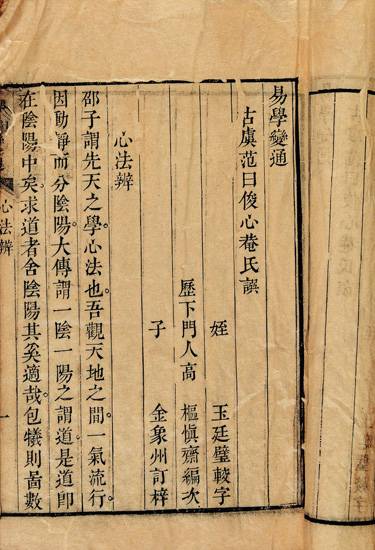 易學變通
古虞范日俊心菴氏譔
姪　玉廷璧較字
歷下門人高　樞愼齋編次
子　金象州訂梓
心法辨
邵子謂先天之學。心法也。吾觀天地之間。一氣流行。
因動靜而分陰陽。大傳謂一陰一陽之謂道。是道卽
在陰陽中矣。求道者舍陰陽其奚適哉。包犧則啚數
心法辨
一